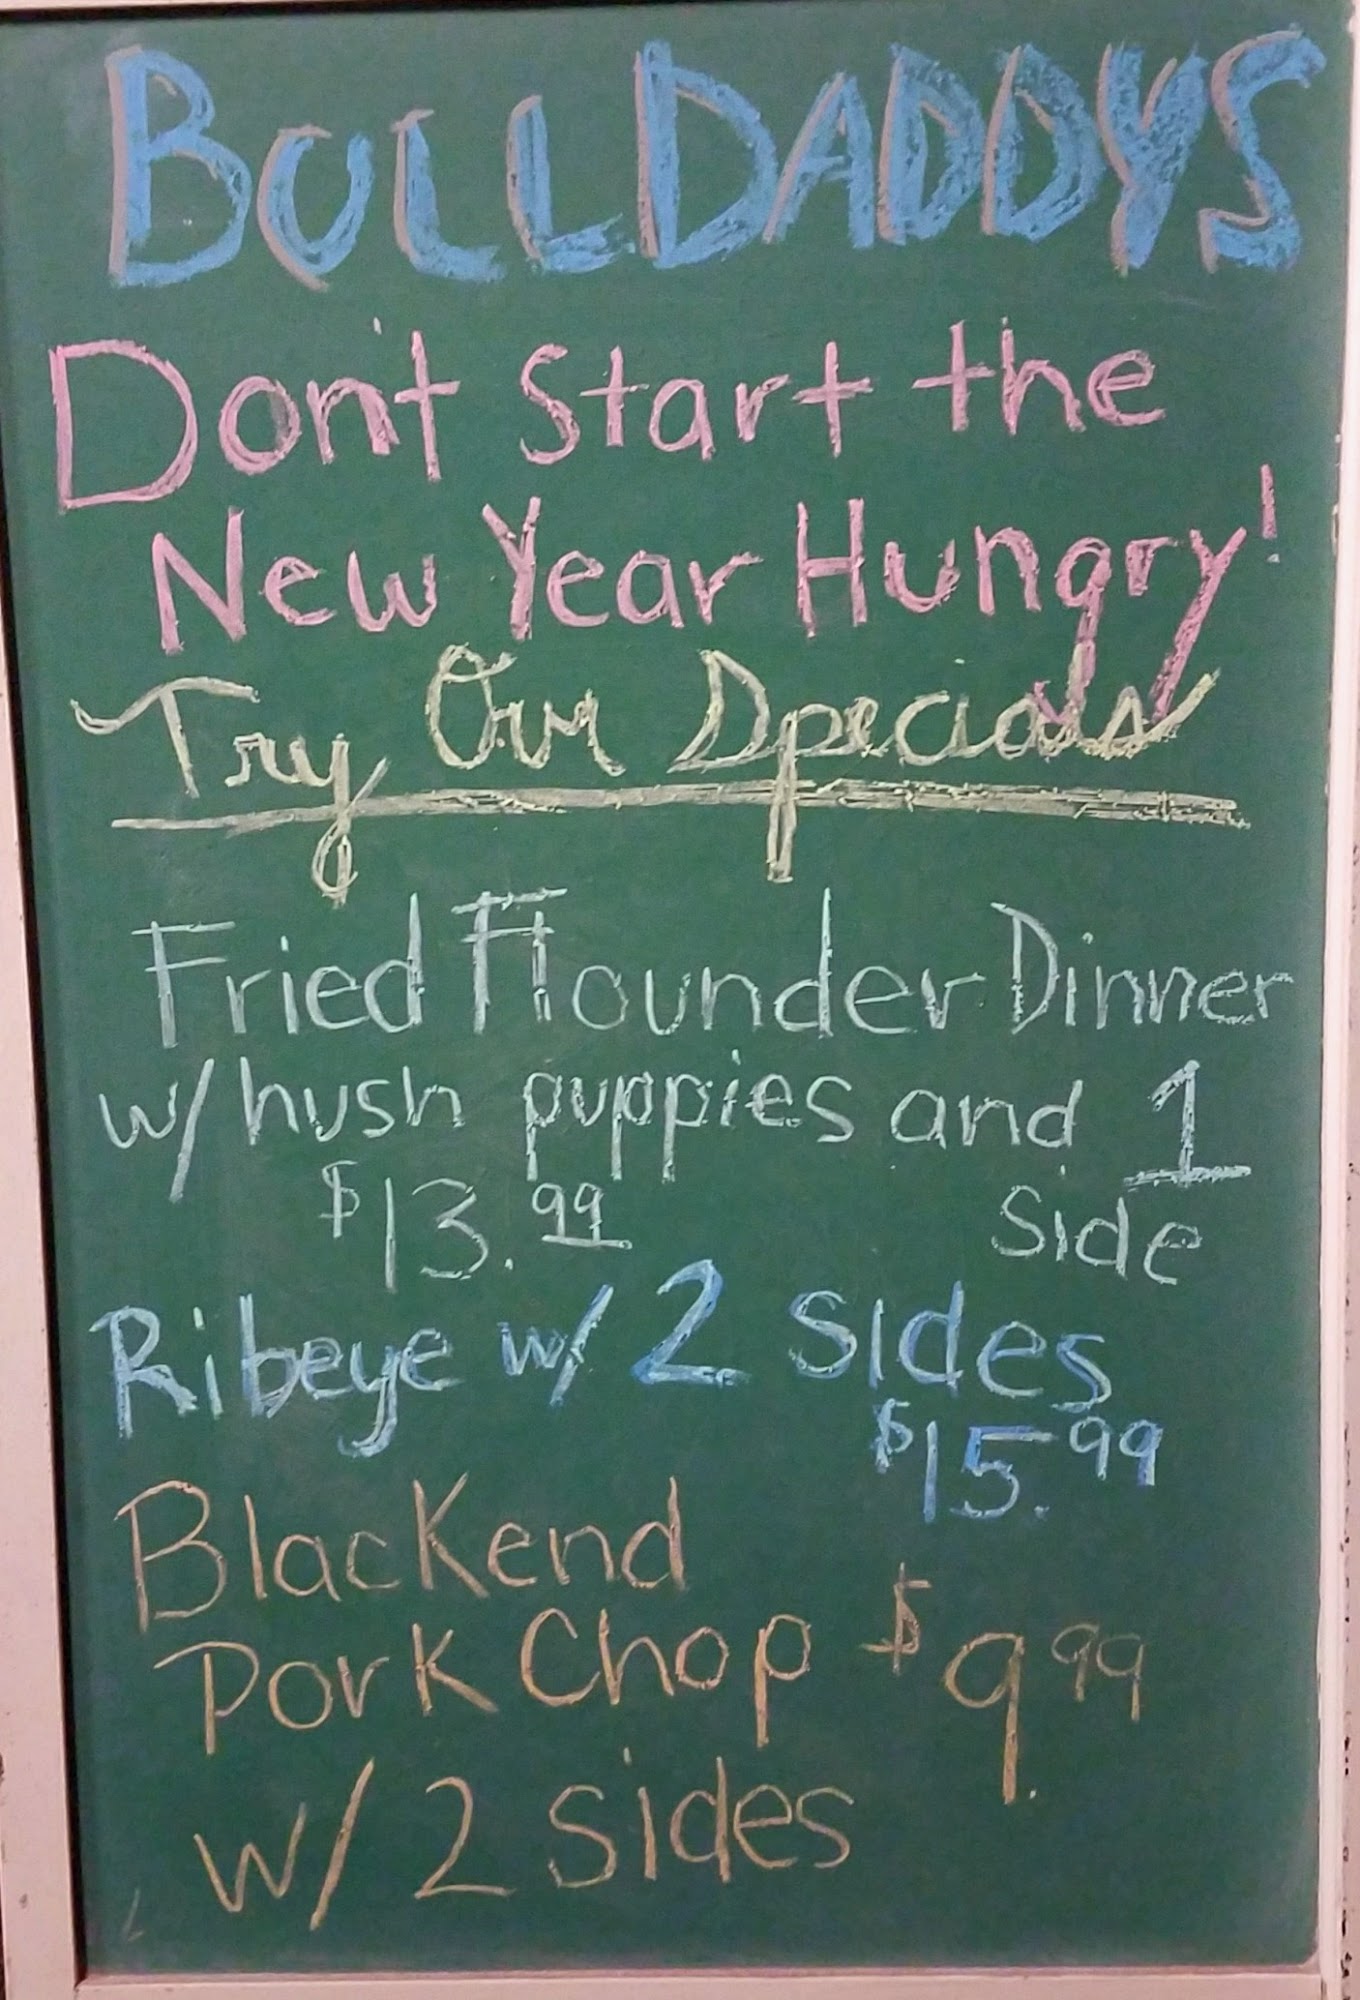 BULLDADDYS
Don't Start the
New Year Hungry!
Try Our Specials
Fried Flounder Dinner
w/ hush puppies and 1
$13.99 Side
Ribeye w/ 2 Sides
$15.99
Blackend
Pork Chop $9.99
w/ 2 sides